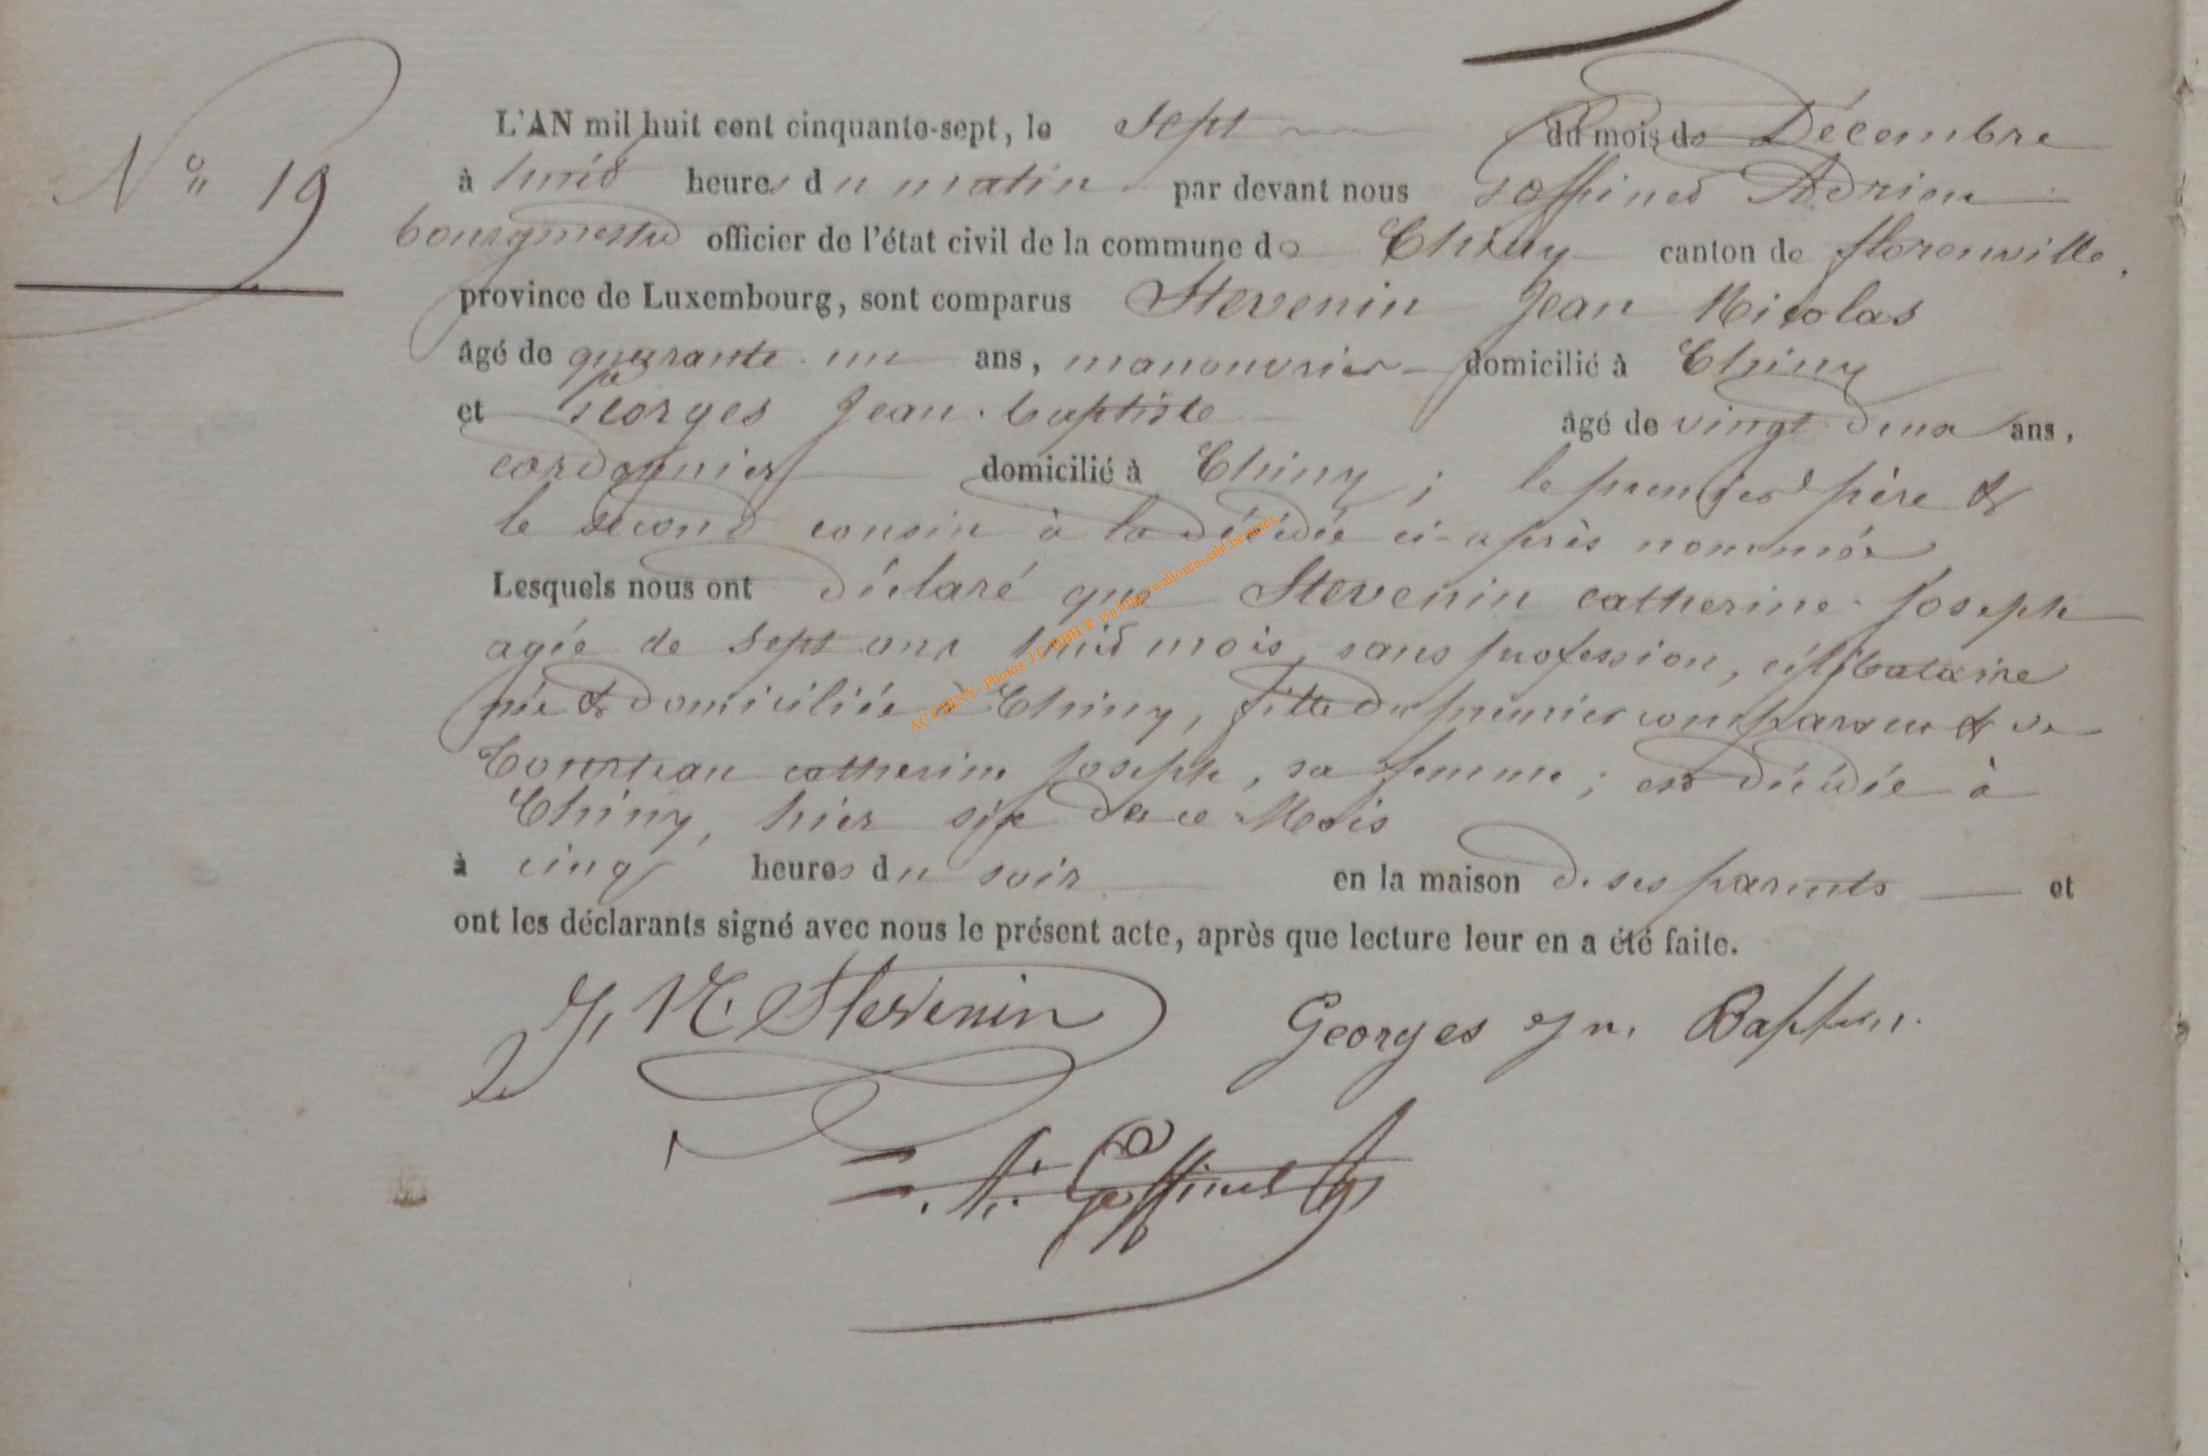 N° 19
L'AN mil huit cent cinquante-sept, le sept du mois de Décembre
à huit heures du matin par devant nous Goffinet Adrien
bourgmestre officier de l'état civil de la commune de Chiny canton de florenville,
province de Luxembourg, sont comparus Stevenin Jean Nicolas
âgé de quarante-un ans, manouvrier domicilié à Chiny
et Georges Jean-baptiste âgé de vingt deux ans,
cordonnier domicilié à Chiny; le premier père &
le second cousin à la décédée ci-après nommée
Lesquels nous ont déclaré que Stevenin catherine Joseph
agée de sept ans huit mois, sans profession, célibataire
née & domiciliée à Chiny, fille du premier comparant & de
catherine Joseph, sa femme; est décédée à
Chiny, hier six de ce Mois
à cinq heures du soir en la maison de ses parents et
ont les déclarants signé avec nous le présent acte, après que lecture leur en a été faite.
J. N. Stevenin Georges Jn. Baptiste
A. Goffinet
AC CHINY - Photos J.C. MBH ® via http://wallonia-asbl.be/actes